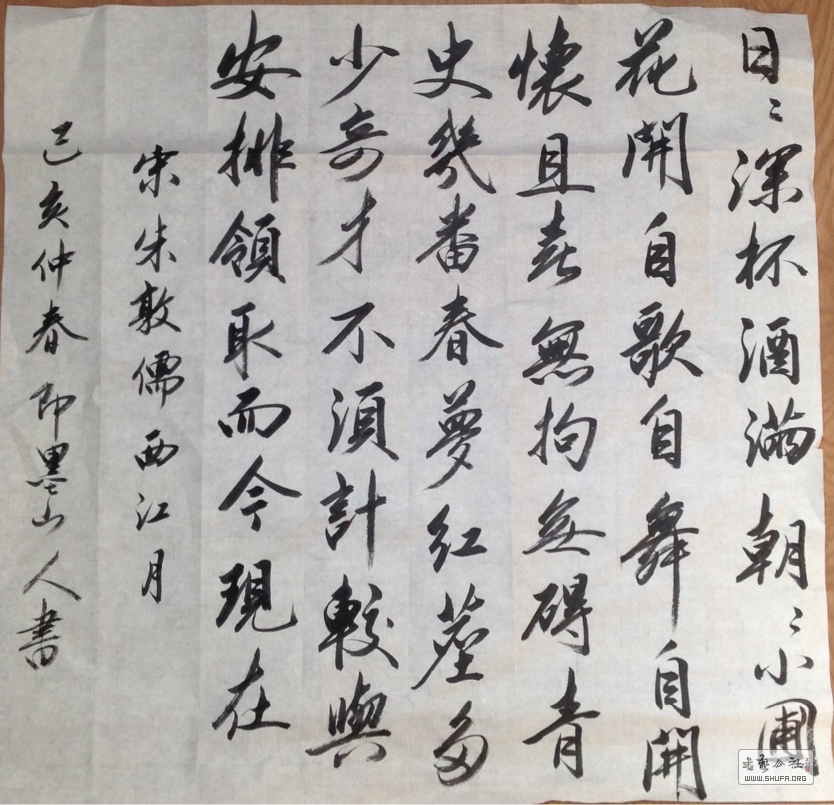 日〻深杯酒滿朝〻小圃
花開自歌自舞自開
懷且喜無拘無碍青
史幾番春夢紅塵多
少奇才不須計較與
安排領取而今現在
宋朱敦儒西江月
己亥仲春即墨山人書
WWW.SHUFA.ORG